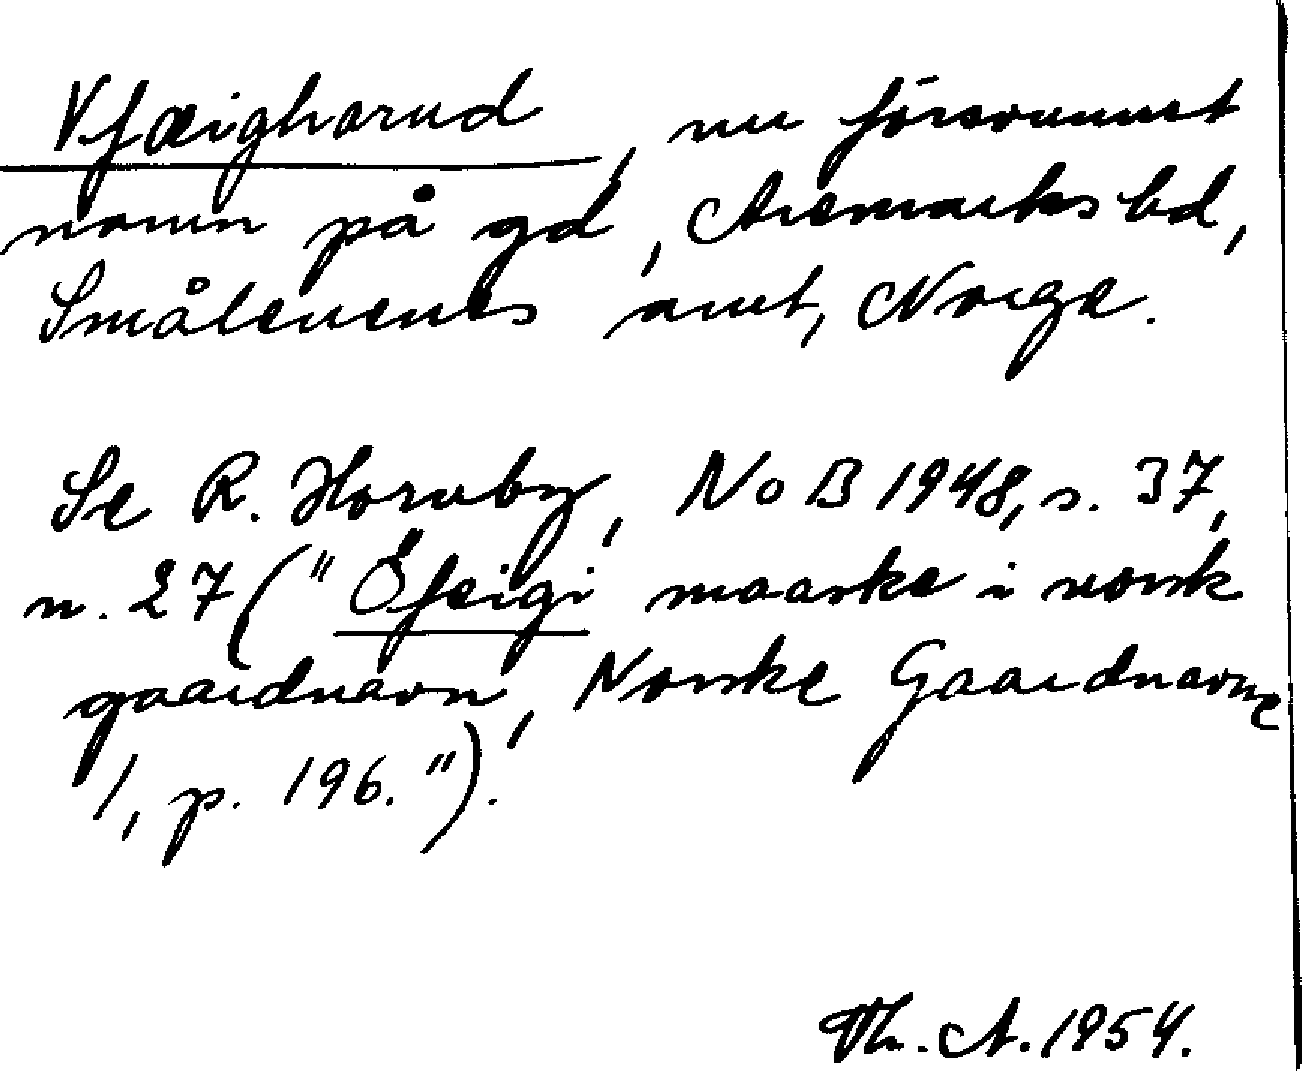 Vfæigharud, nu försvunnet
namn på gd, Aremarks bd,
Smålenenes amt, Norge.
Se R. Hornby, NoB 1948, s. 37,
n. 27 (" Ófeigi maaske i norsk
gaardnavn, Norske Gaardnavne
1, p. 196.").
Th. A. 1954.